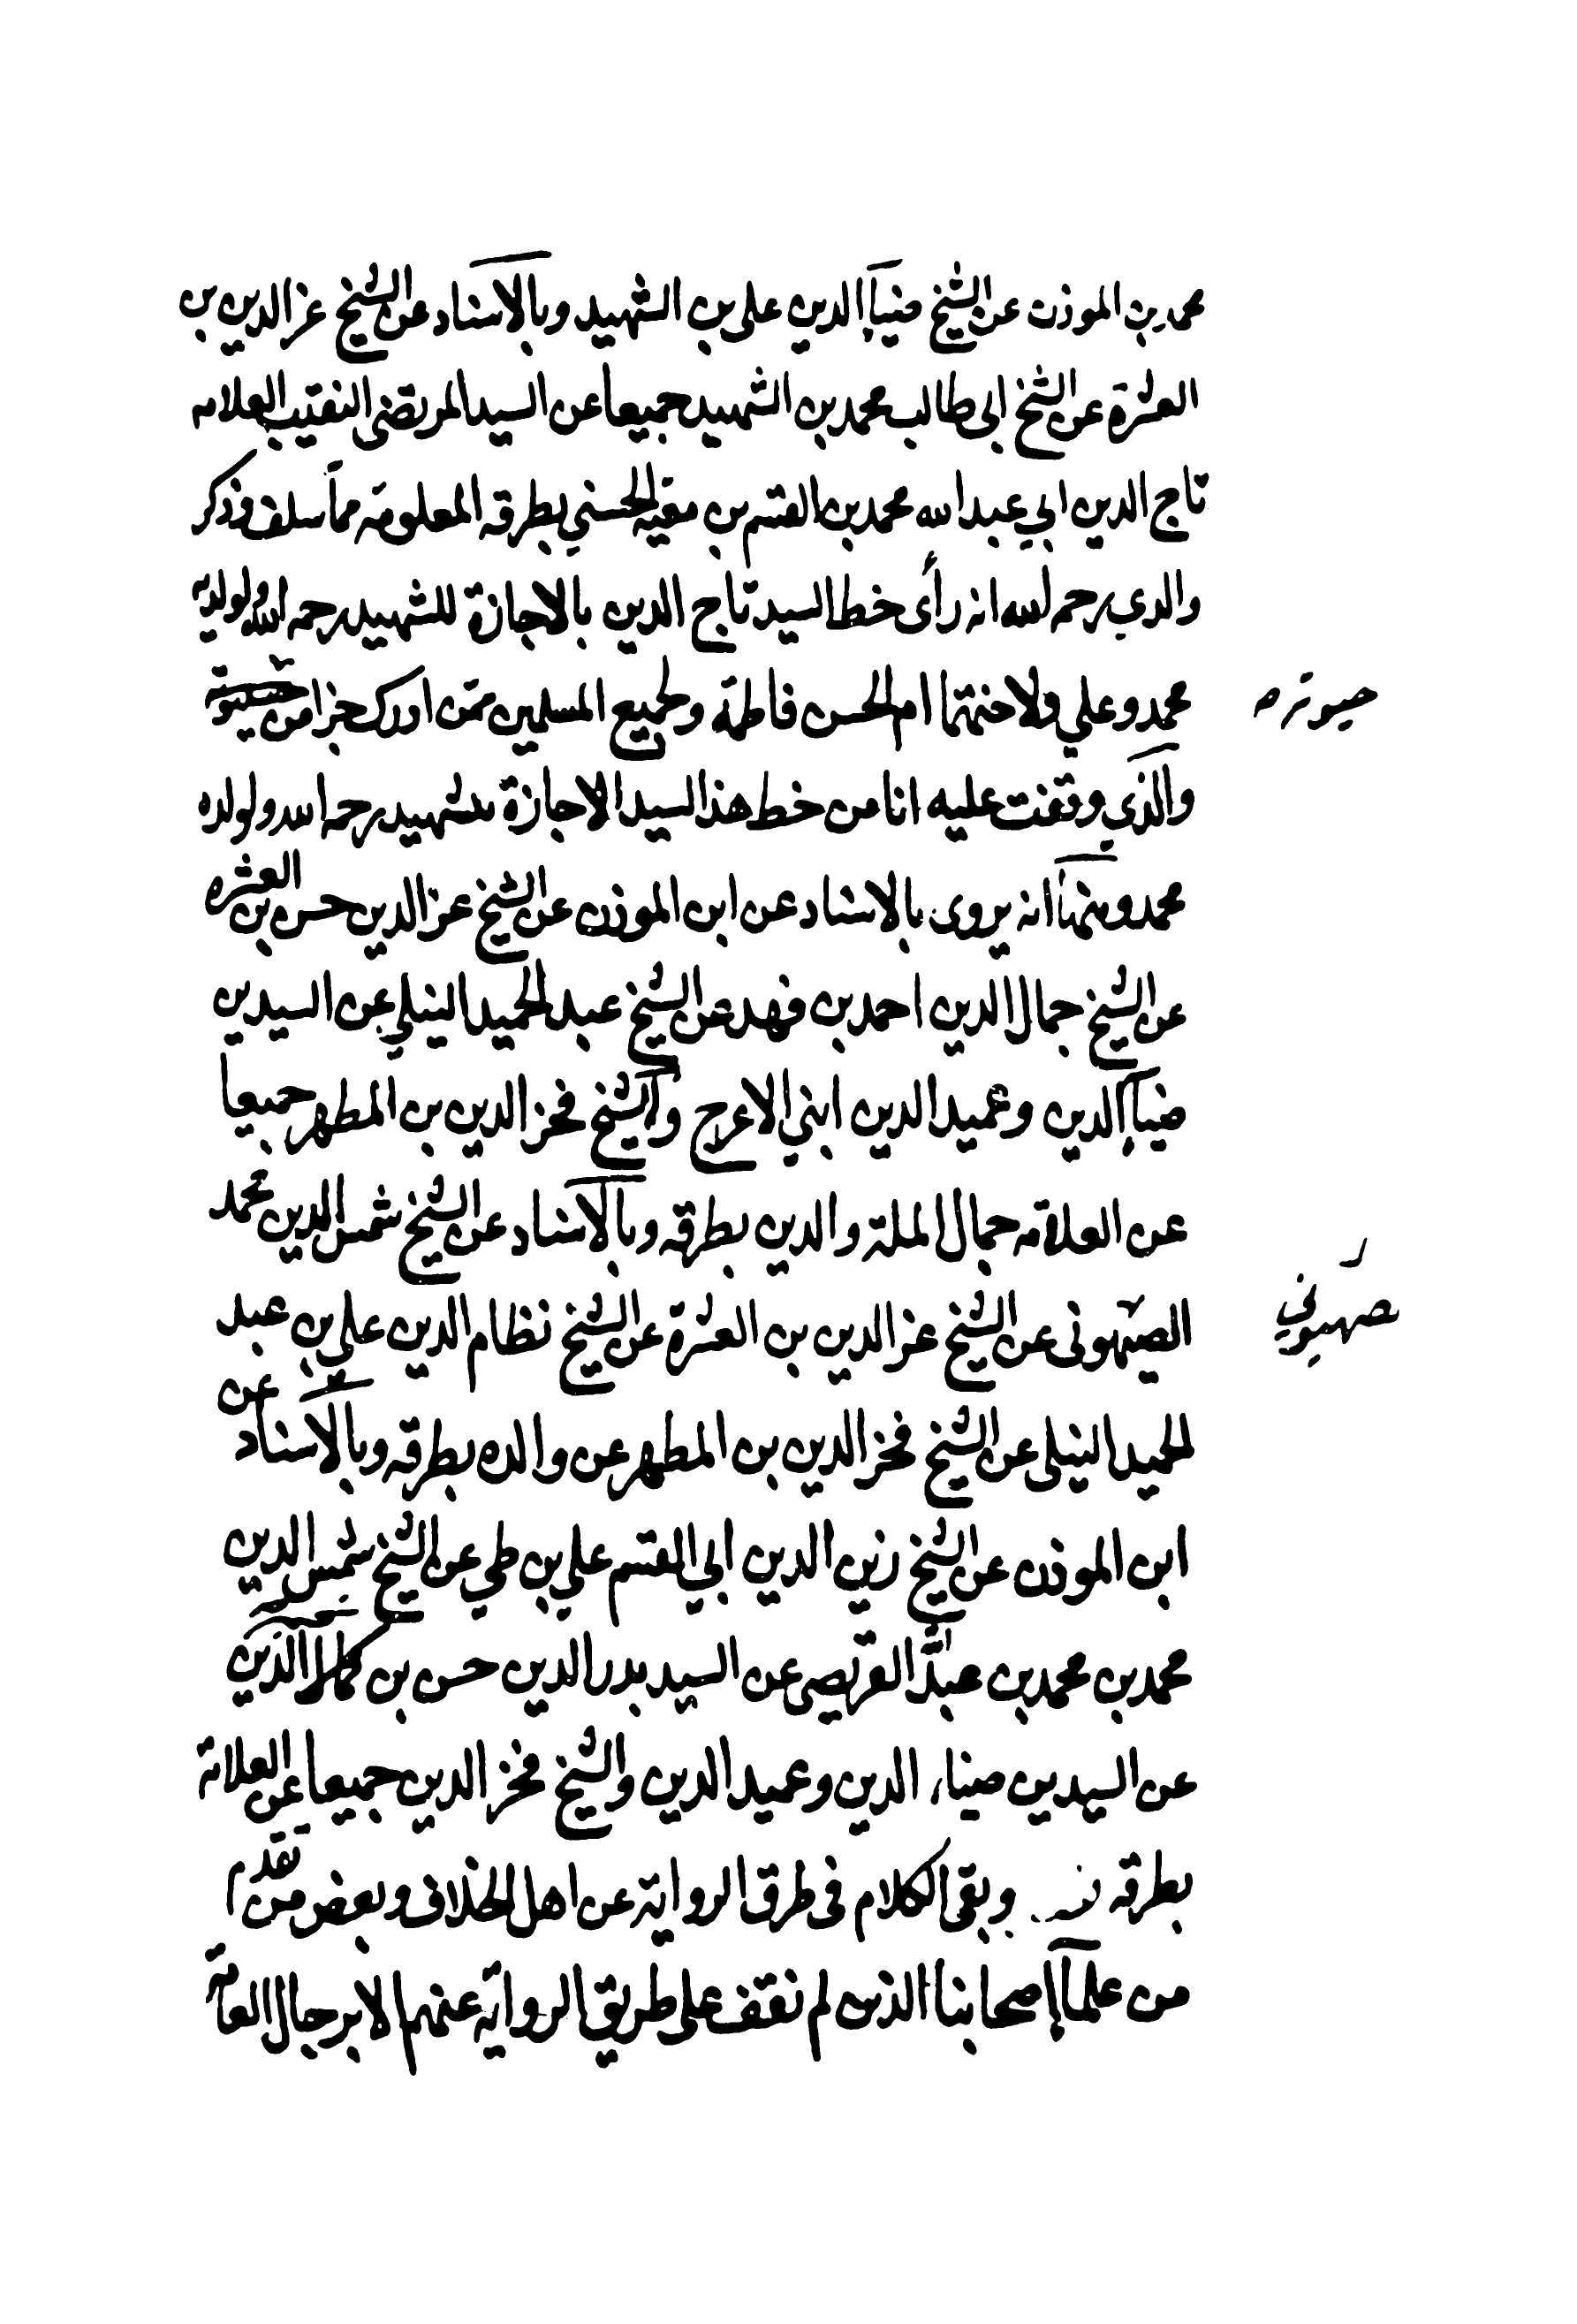 محمد بن الموذن عن الشيخ ضياء الدين علي بن الشهيد وبالاسناد عن الشيخ عز الدين بن
العشرة عن الشيخ ابي طالب محمد بن الشهيد جميعا عن السيد المرتضى النقيب العلامه
تاج الدين ابي عبد الله محمد بن القسم بن معيه الحسني بطرقه المعلومة مما سلف وذكر
والدي رحمه الله انه رأى خط السيد تاج الدين بالاجازة للشهيد رحمه الله ولولديه
محمد وعلي ولاختهما ام الحسن فاطمة ولجميع المسلمين ممن ادرك جزا من حيوته
حيوته
والذي وقفت عليه انا من خط هذا السيد الاجازة للشهيد رحمه الله ولولده
محمد ومنها انه يروى بالاسناد عن ابن الموذن عن الشيخ عز الدين حسن بن العشره
عن الشيخ جمال الدين احمد بن فهد عن الشيخ عبد الحميد النيلي عن السيدين
ضياء الدين وعميد الدين ابني الاعرج والشيخ فخر الدين بن المطهر جميعا
عن العلامة جمال الملة والدين بطرقه وبالاسناد عن الشيخ شمس الدين محمد
الصهيوني عن الشيخ عز الدين بن العشرة عن الشيخ نظام الدين علي بن عبد
صهيوني
الحميد النيلي عن الشيخ فخر الدين بن المطهر عن والده بطرقه وبالاسناد عن
ابن الموذن عن الشيخ زين الدين ابي القسم علي بن طي عن الشيخ شمس الدين
محمد بن محمد بن عبد الله العريضي عن السيد بدر الدين حسن بن نجم الدين
عن السيدين ضياء الدين وعميد الدين والشيخ فخر الدين جميعا عن العلامة
بطرقه وبقى الكلام في طرق الرواية عن اهل الخلاف وبعض من تقدم
من علماء اصحابنا الذين لم نقف على طريق الرواية عنهم الا برجال العامة